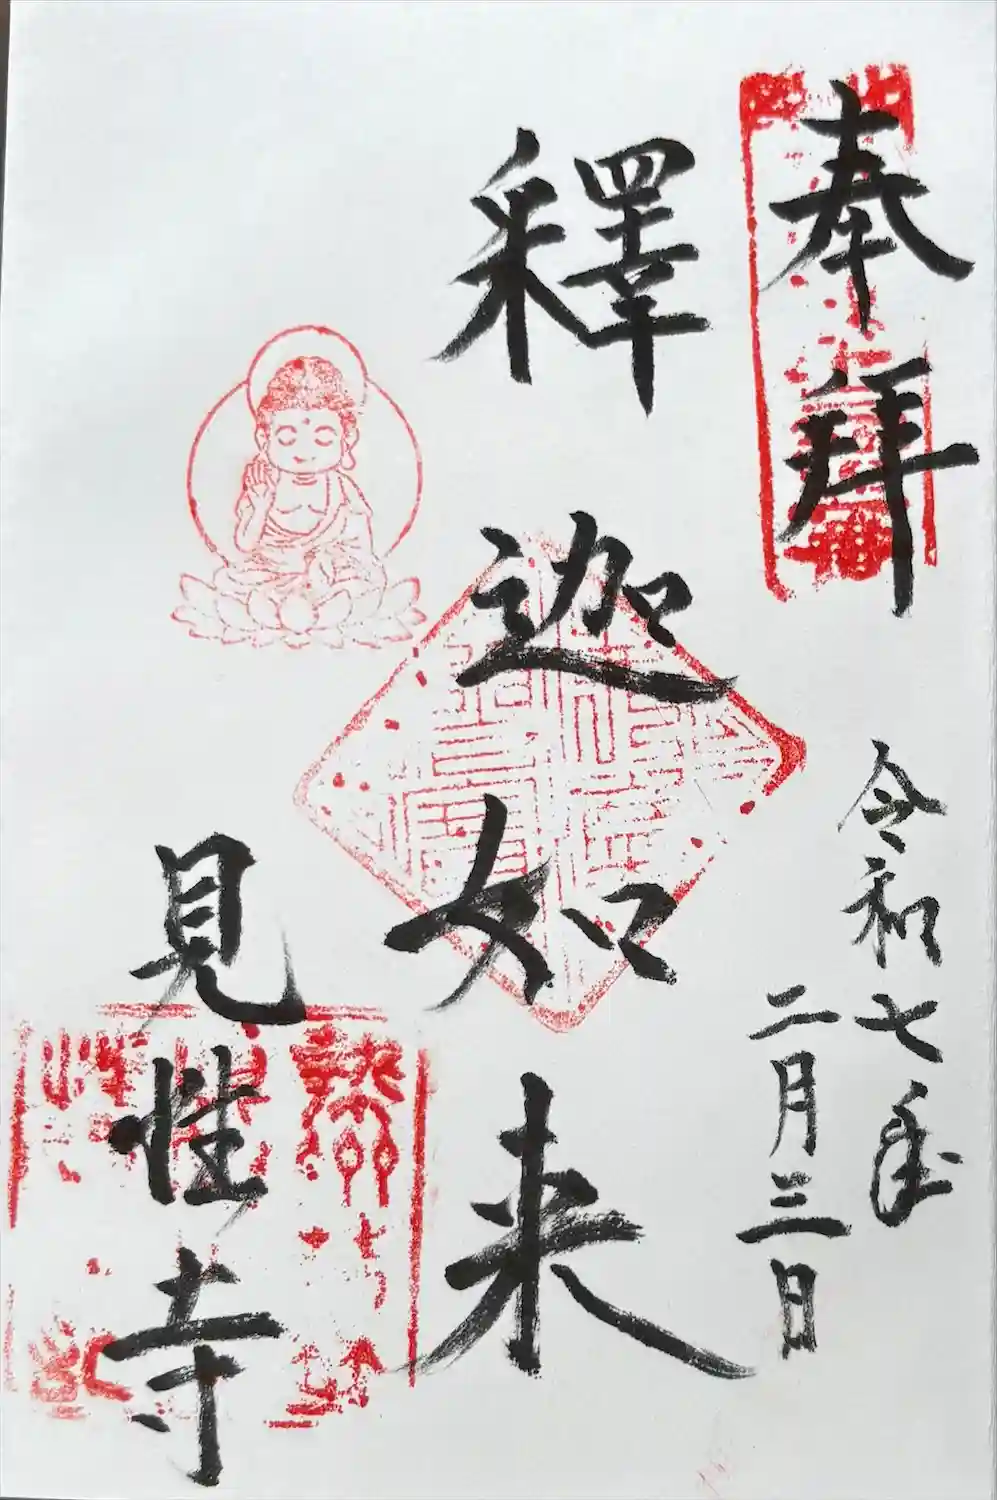 奉拜
令和七年
二月三日
釋迦如来
見性寺